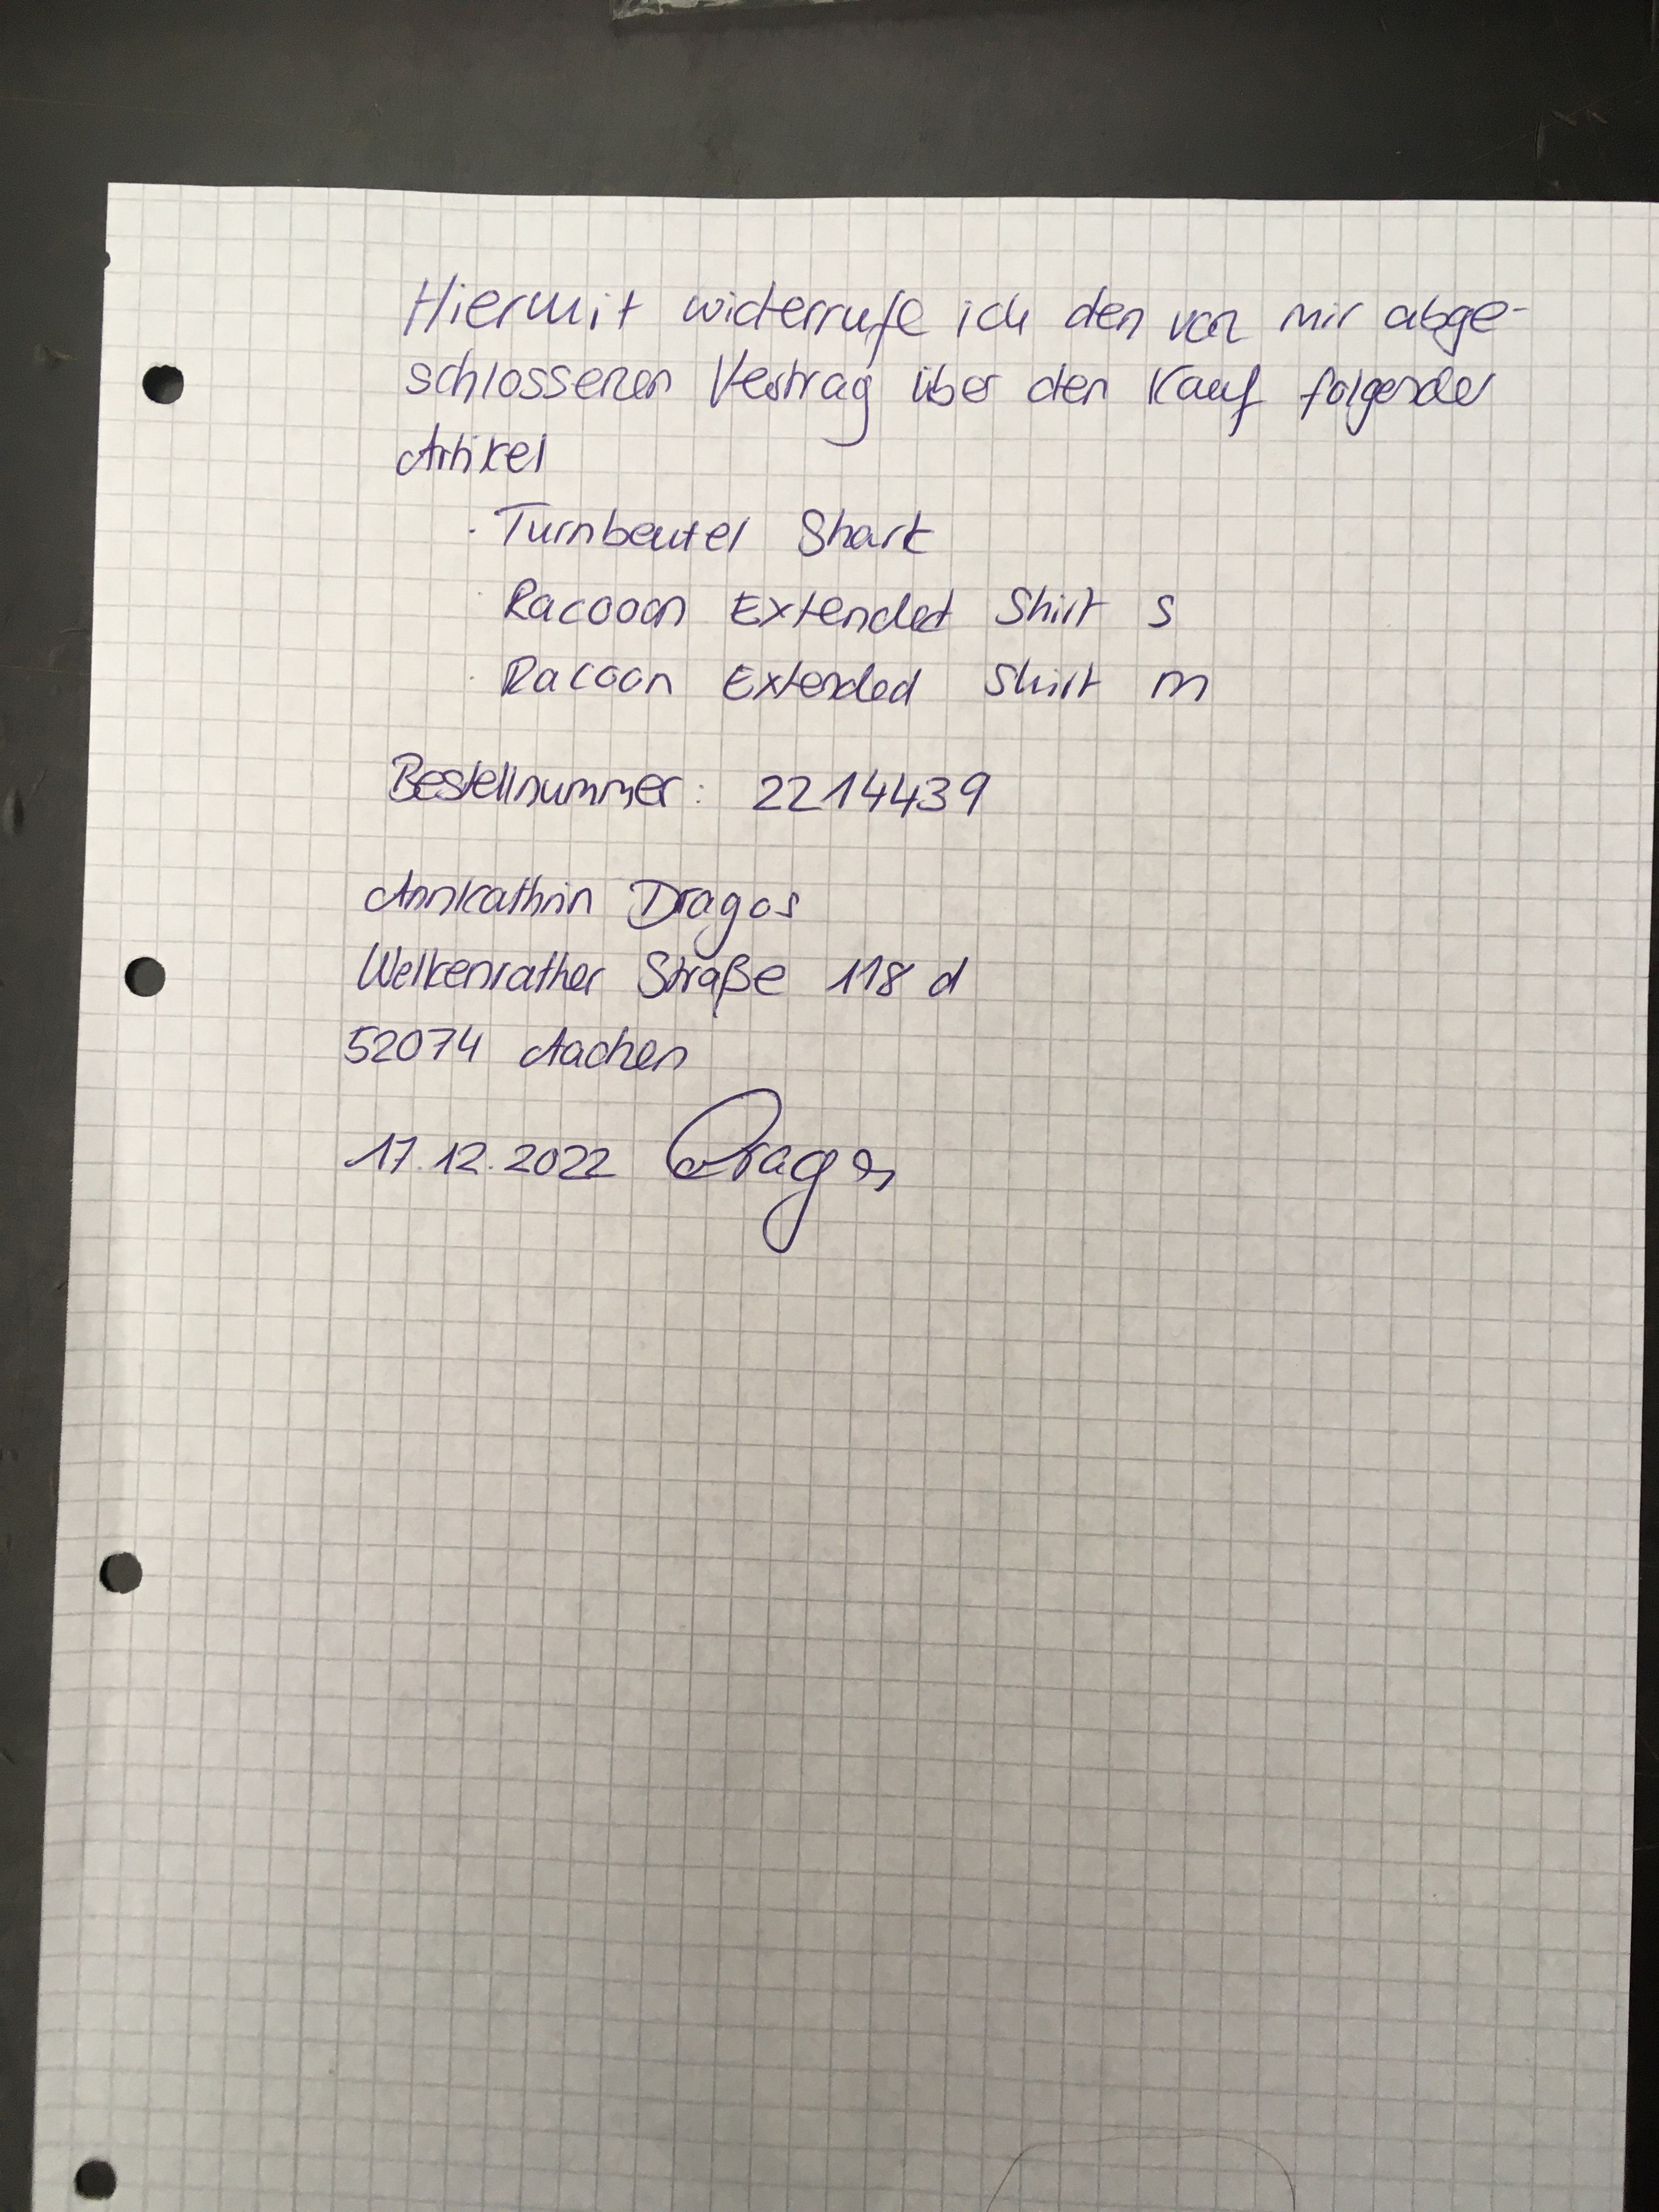 Hiermit widerrufe ich den von mir abge-
schlossenen Vertrag über den Kauf folgender
Artikel
· Turnbeutel Shark
· Racooon Extended Shirt S
· Racoon Extended Shirt m
Bestellnummer: 2214439
Annkathrin Dragos
Welkenrather Straße 118 d
52074 Aachen
17.12.2022 Dragos